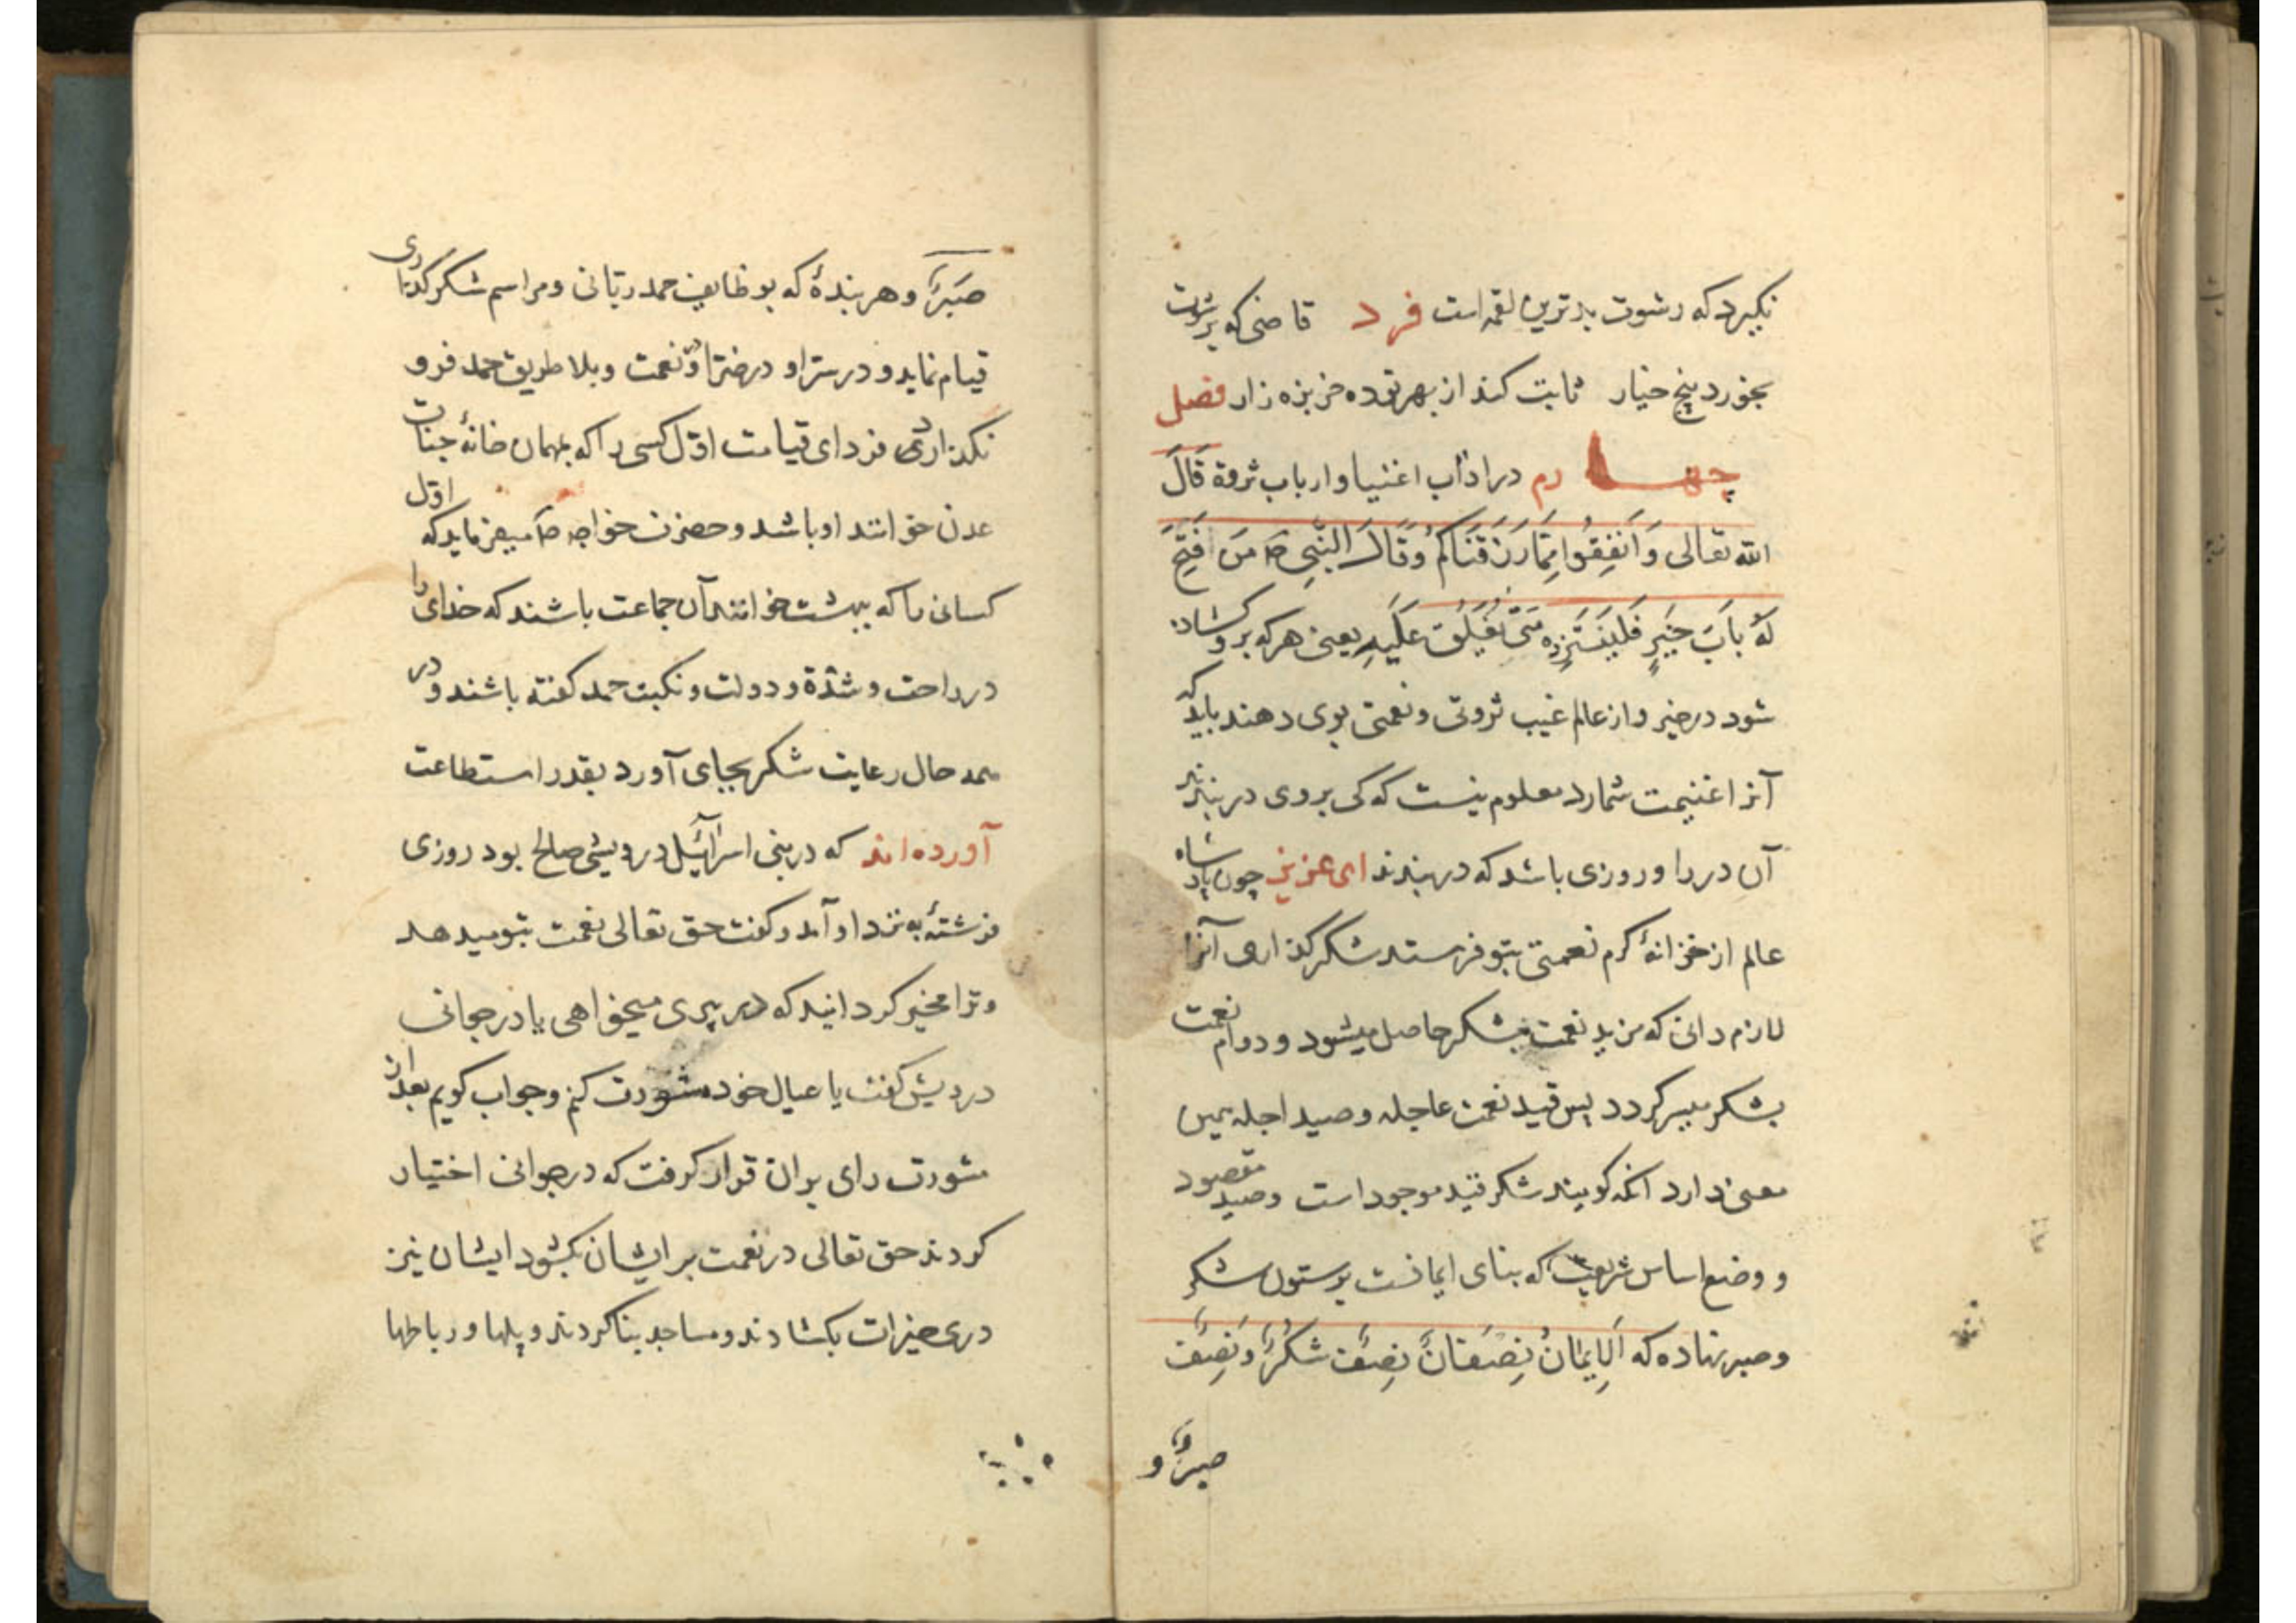 نکیرد که رشوت بدترین لقمه است فرد قاضی که برشوت
بخورد پنج خیار ثابت کند از بهر تو ده خربزه زار فصل
چهارم در اداب اغنیا و ارباب ثروة قَالَ
الله تعالی وَاَنفِقُوا مِمَّا رَزَقْنَاكُمْ وَقَالَ النَّبِی صَ مَنْ فُتِحَ
لَهُ بَابَ خَیْرٍ فَلْیَنْتَهِزْهُ مَتَی یُغْلَقْ عَلَیْهِ یعنی هر که برو کشاده
شود در خیر و از عالم غیب ثروتی و نعمتی بوی دهند باید که
آنرا غنیمت شمارد معلوم نیست که کی بروی در بندند
آن در را و روزی باشد که در بندند ای عزیز چون پادشاه
عالم از خزانهٔ کرم نعمتی بتو فرستد شکر کذاری آنرا
لازم دانی که مزید نعمت بشکر حاصل میشود و دوام نعمت
بشکر میسر کردد پس قید نعمت عاجله و صید اجله همین
معنی دارد انکه کویند شکر قید موجود است و صید مقصود
و وضع اساس شریعت که بنای ایمانست برستون شکر
و صبر نهاده که اَلاِیمَانُ نِصْفَانِ نِصْفٌ شُكْرٌ وَنِصْفٌ
صبرٌ و
صَبْرٌ و هر بندهٔ که بوظایف حمد ربانی و مراسم شکر کذاری
قیام نماید و در سرّا و در ضرّا و در نعمت و بلا طریق حمد فرو
نکذارد فردای قیامت اوّل کسی را که بمهمان خانهٔ جنات
عدن خوانند او باشد و حضرت خواجه صَ میفرماید که اوّل
کسانی را که ببهشت خوانند آن جماعت باشند که خدای را
در راحت و شدّة و دولت و نکبت حمد کفته باشند و در
همه حال رعایت شکر بجای آورد بقدر استطاعت
آورده اند که در بنی اسرائیل درویشی صالح بود روزی
فرشتهٔ به نزد او آمد و کفت حق تعالی نعمت بتو میدهد
و ترا مخیر کردانید که در پیری میخواهی یا در جوانی
درویش کفت با عیال خود مشورت کنم و جواب کویم بعد از
مشورت رای بران قرار کرفت که در جوانی اختیار
کردند حق تعالی در نعمت بر ایشان بکشود ایشان نیز
دری خیرات بکشادند و مساجد بنا کردند و پلها و رباطها